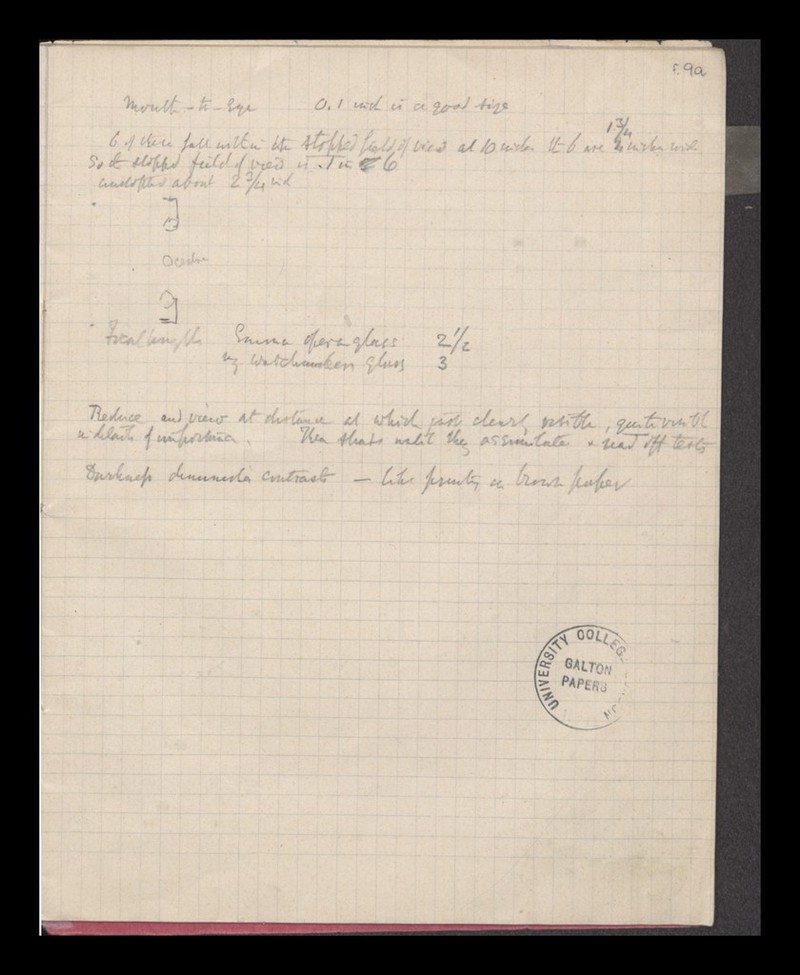 F. 9a
Mouth - to - Eye 0.1 inch is a good size
1 3/4
6 of these fall within the stopped field of view at 10 inches the 6 are inches wide
So the stopped field of view is .1 in 6
unstopped about 2 3/4 inch
Ocular
Focal length Emma opera glass 2 1/2
my watchmakers glass 3
Reduce and view at distance at which just clearly visible, quite visible
in details of importance. Then shade until they assimilate & read off tests
Darkness diminishes contrasts — like printing on brown paper
UNIVERSITY COLLEGE
GALTON
PAPERS